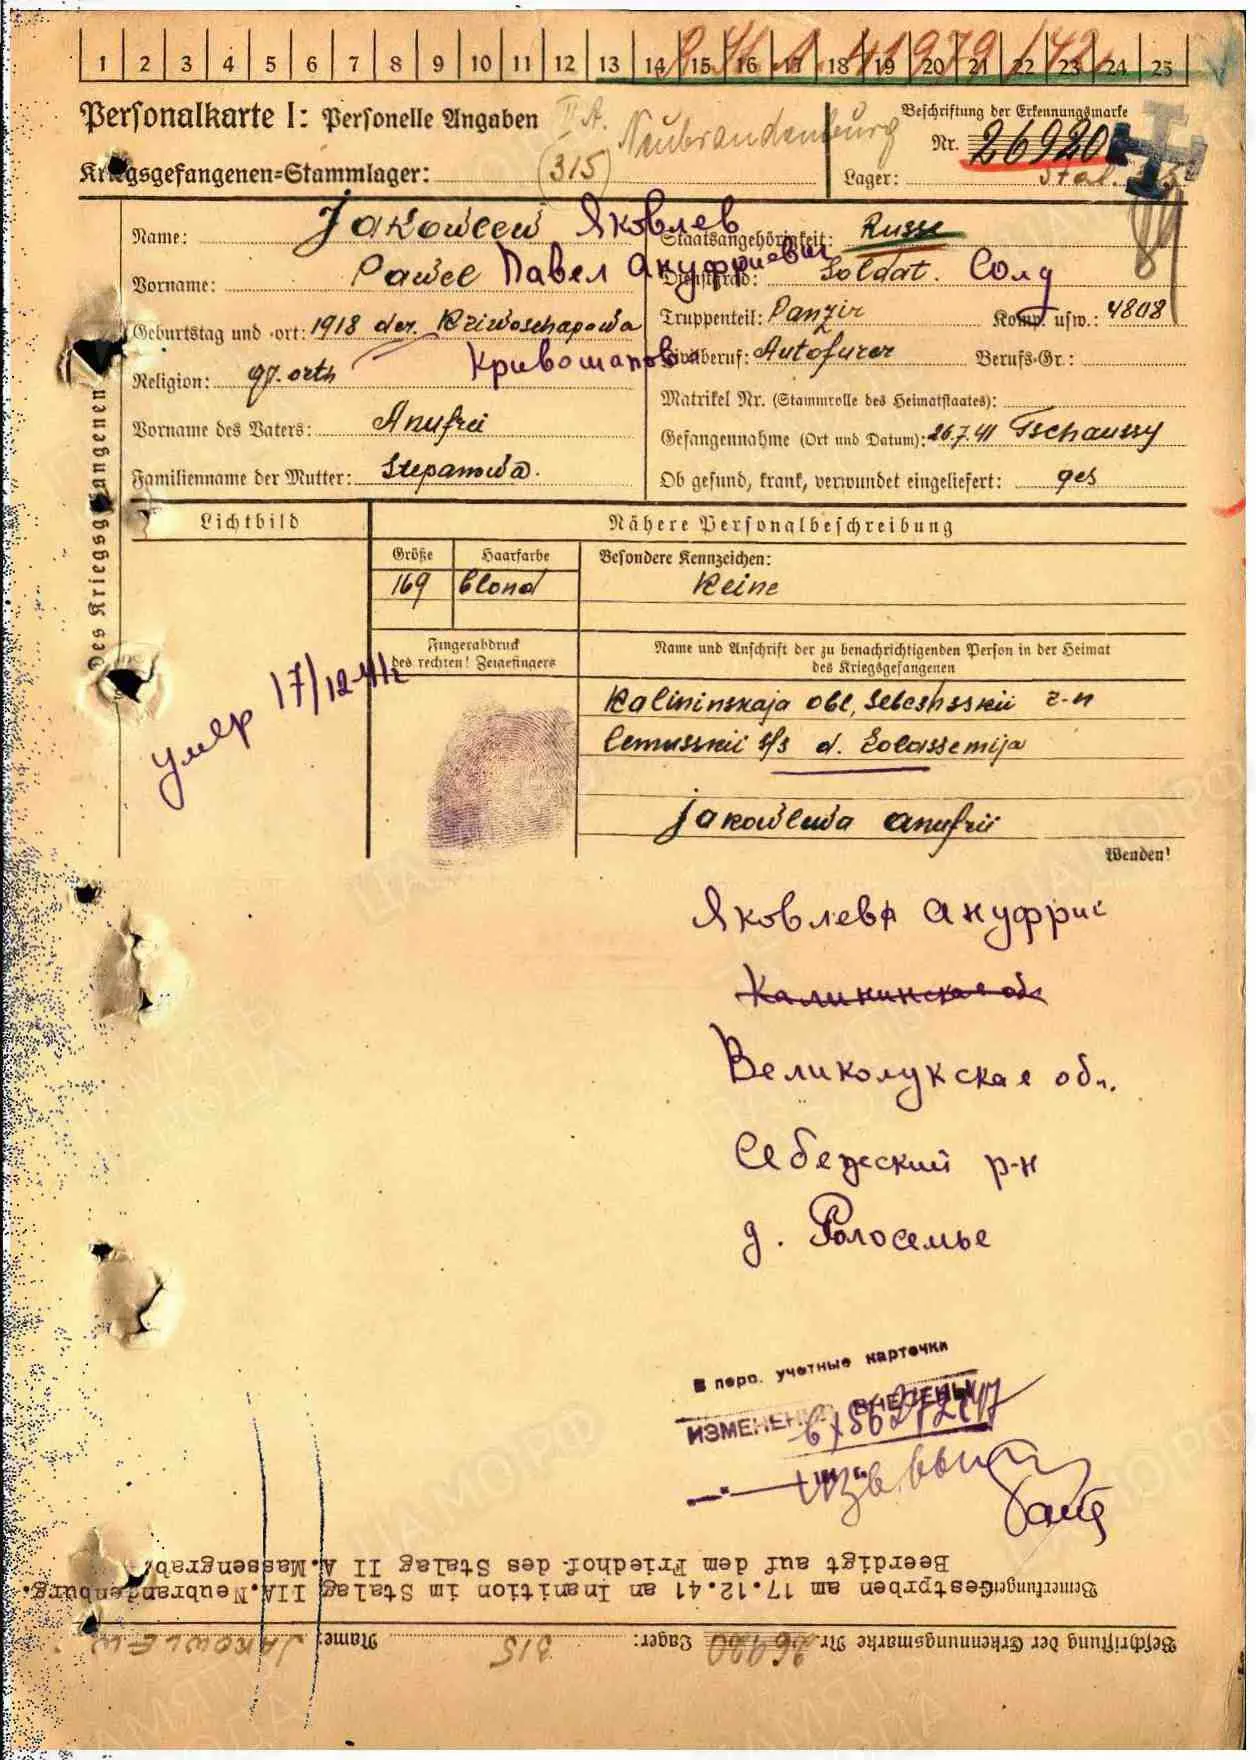 1 2 3 4 5 6 7 8 9 10 11 12 13 14 15 16 17 18 19 20 21 22 23 24 25
41979/42
Personalkarte I: Personelle Angaben
II A. Neubrandenburg
Beschriftung der Erkennungsmarke
Nr. 26920
Kriegsgefangenen-Stammlager: (315)
Lager: Stal. 315
Name: Jakowlew Яковлев
Staatsangehörigkeit: Russe
Vorname: Pawel Павел Ануфриевич
Dienstgrad: Soldat. Солд
Geburtstag und -ort: 1918 der. Kriwoschapowa
Truppenteil: Panzir Komp. usw.: 4808
Кривошапово
Zivilberuf: Autofürer Berufs-Gr.:
Religion: gr. orth
Matrikel Nr. (Stammrolle des Heimatstaates):
Vorname des Vaters: Anufrii
Gefangennahme (Ort und Datum): 26.7.41 Tschaussy
Familienname der Mutter: Stepanowa.
Ob gesund, krank, verwundet eingeliefert: ges
Des Kriegsgefangenen
Lichtbild
Nähere Personalbeschreibung
Größe Haarfarbe Besondere Kennzeichen:
169 blond Keine
Fingerabdruck
des rechten! Zeigefingers
Name und Anschrift der zu benachrichtigenden Person in der Heimat
des Kriegsgefangenen
умер 17/12-41г
Kalininskaja obl, Sebeshsskii r-n
s/s d.
Jakowlewa Anufrii
Wenden!
Яковлева Ануфрис
Калининская об
Великолукская обл.
Себежский р-н
д. Фолосемье
В перс. учетные карточки
ИЗМЕНЕНИЯ ВНЕСЕНЫ
Beerdigt auf dem Friedhof des Stalag II A. Massengrab.
Bemerkungen: Gestorben am 17.12.41 an Inanition im Stalag IIA. Neubrandenburg.
Beschriftung der Erkennungsmarke Nr. 26920 Lager: 315 Name: JAKOWLEW
ПАМЯТЬ
НАРОДА
ЦАМО.РФ